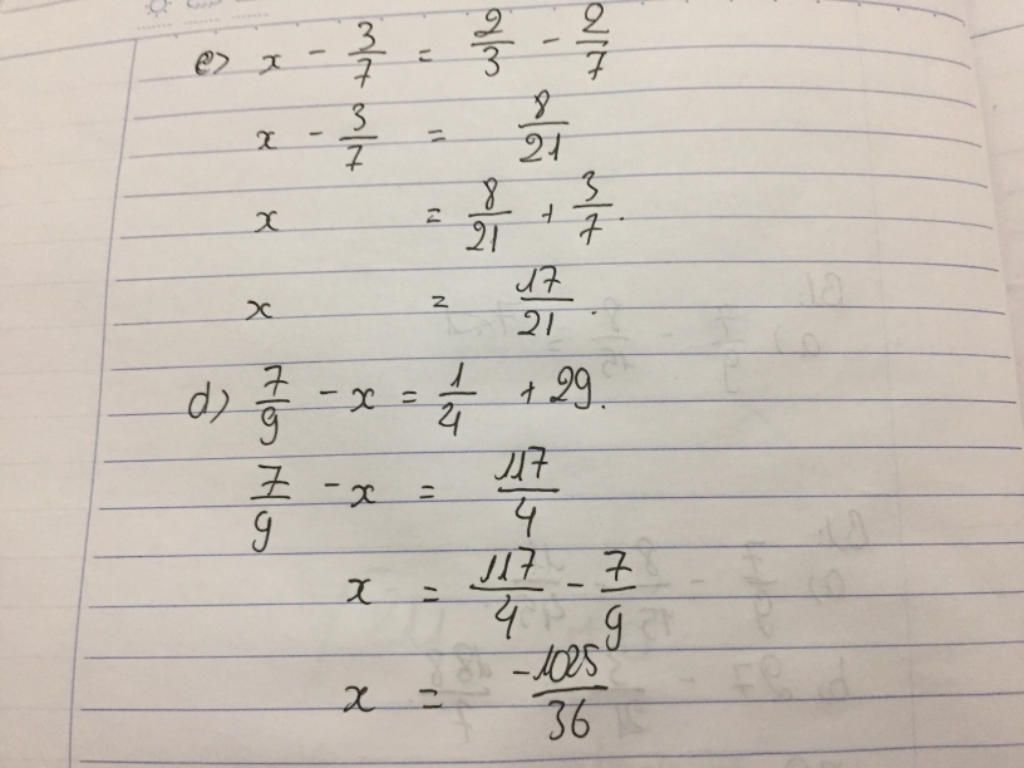 c) x - 3/7 = 2/3 - 2/7
x - 3/7 = 8/21
x = 8/21 + 3/7.
x = 17/21.
d) 7/9 - x = 1/4 + 29.
7/9 - x = 117/4
x = 117/4 - 7/9
x = -1025/36